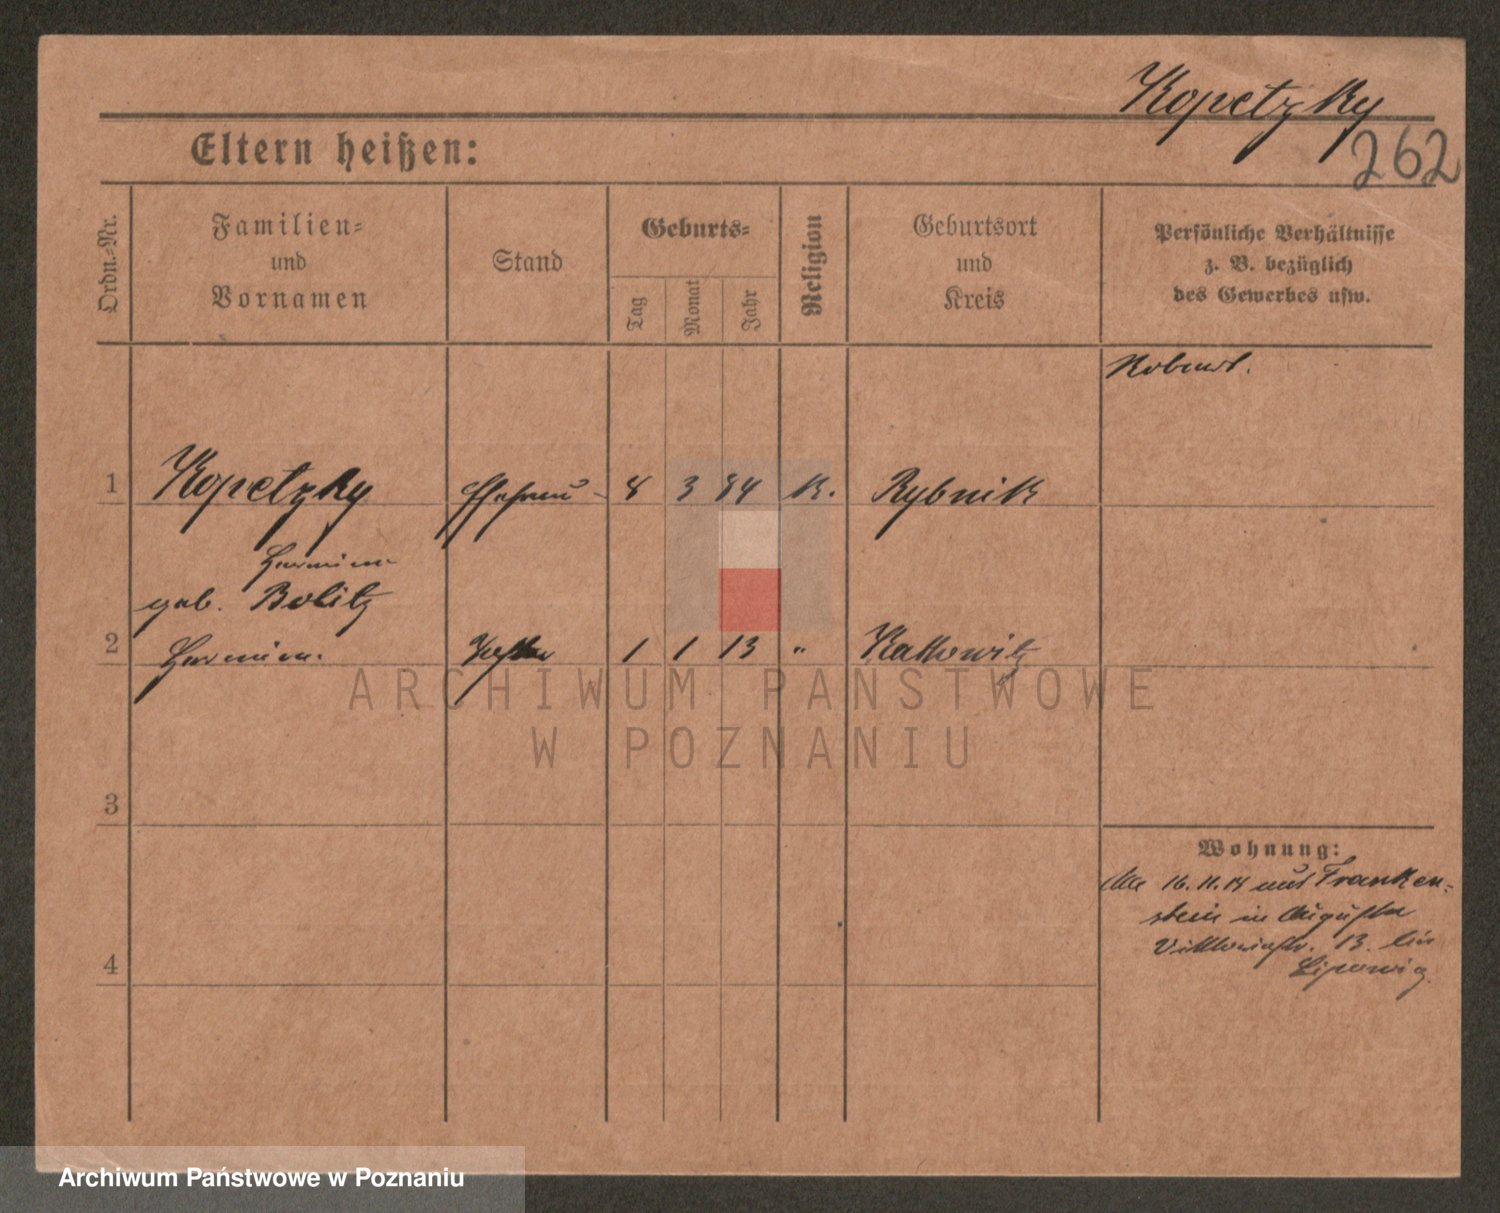 Kopetzky
262
Eltern heißen:
Ordn.-Nr.
Familien-
und
Vornamen
Stand
Geburts-
Tag
Monat
Jahr
Religion
Geburtsort
und
Kreis
Persönliche Verhältnisse
z. B. bezüglich
des Gewerbes usw.
1
Kopetzky
Ehefrau
8
3
84
K.
Rybnik
Hermine
geb. Bolitz
2
Hermine
1
1
13
"
Kattowitz
ARCHIWUM PAŃSTWOWE
W POZNANIU
3
Wohnung:
16.11.14 aus Franken-
stein in Augusta
Viktoriastr. 13. bei
Lipowicz
4
Archiwum Państwowe w Poznaniu